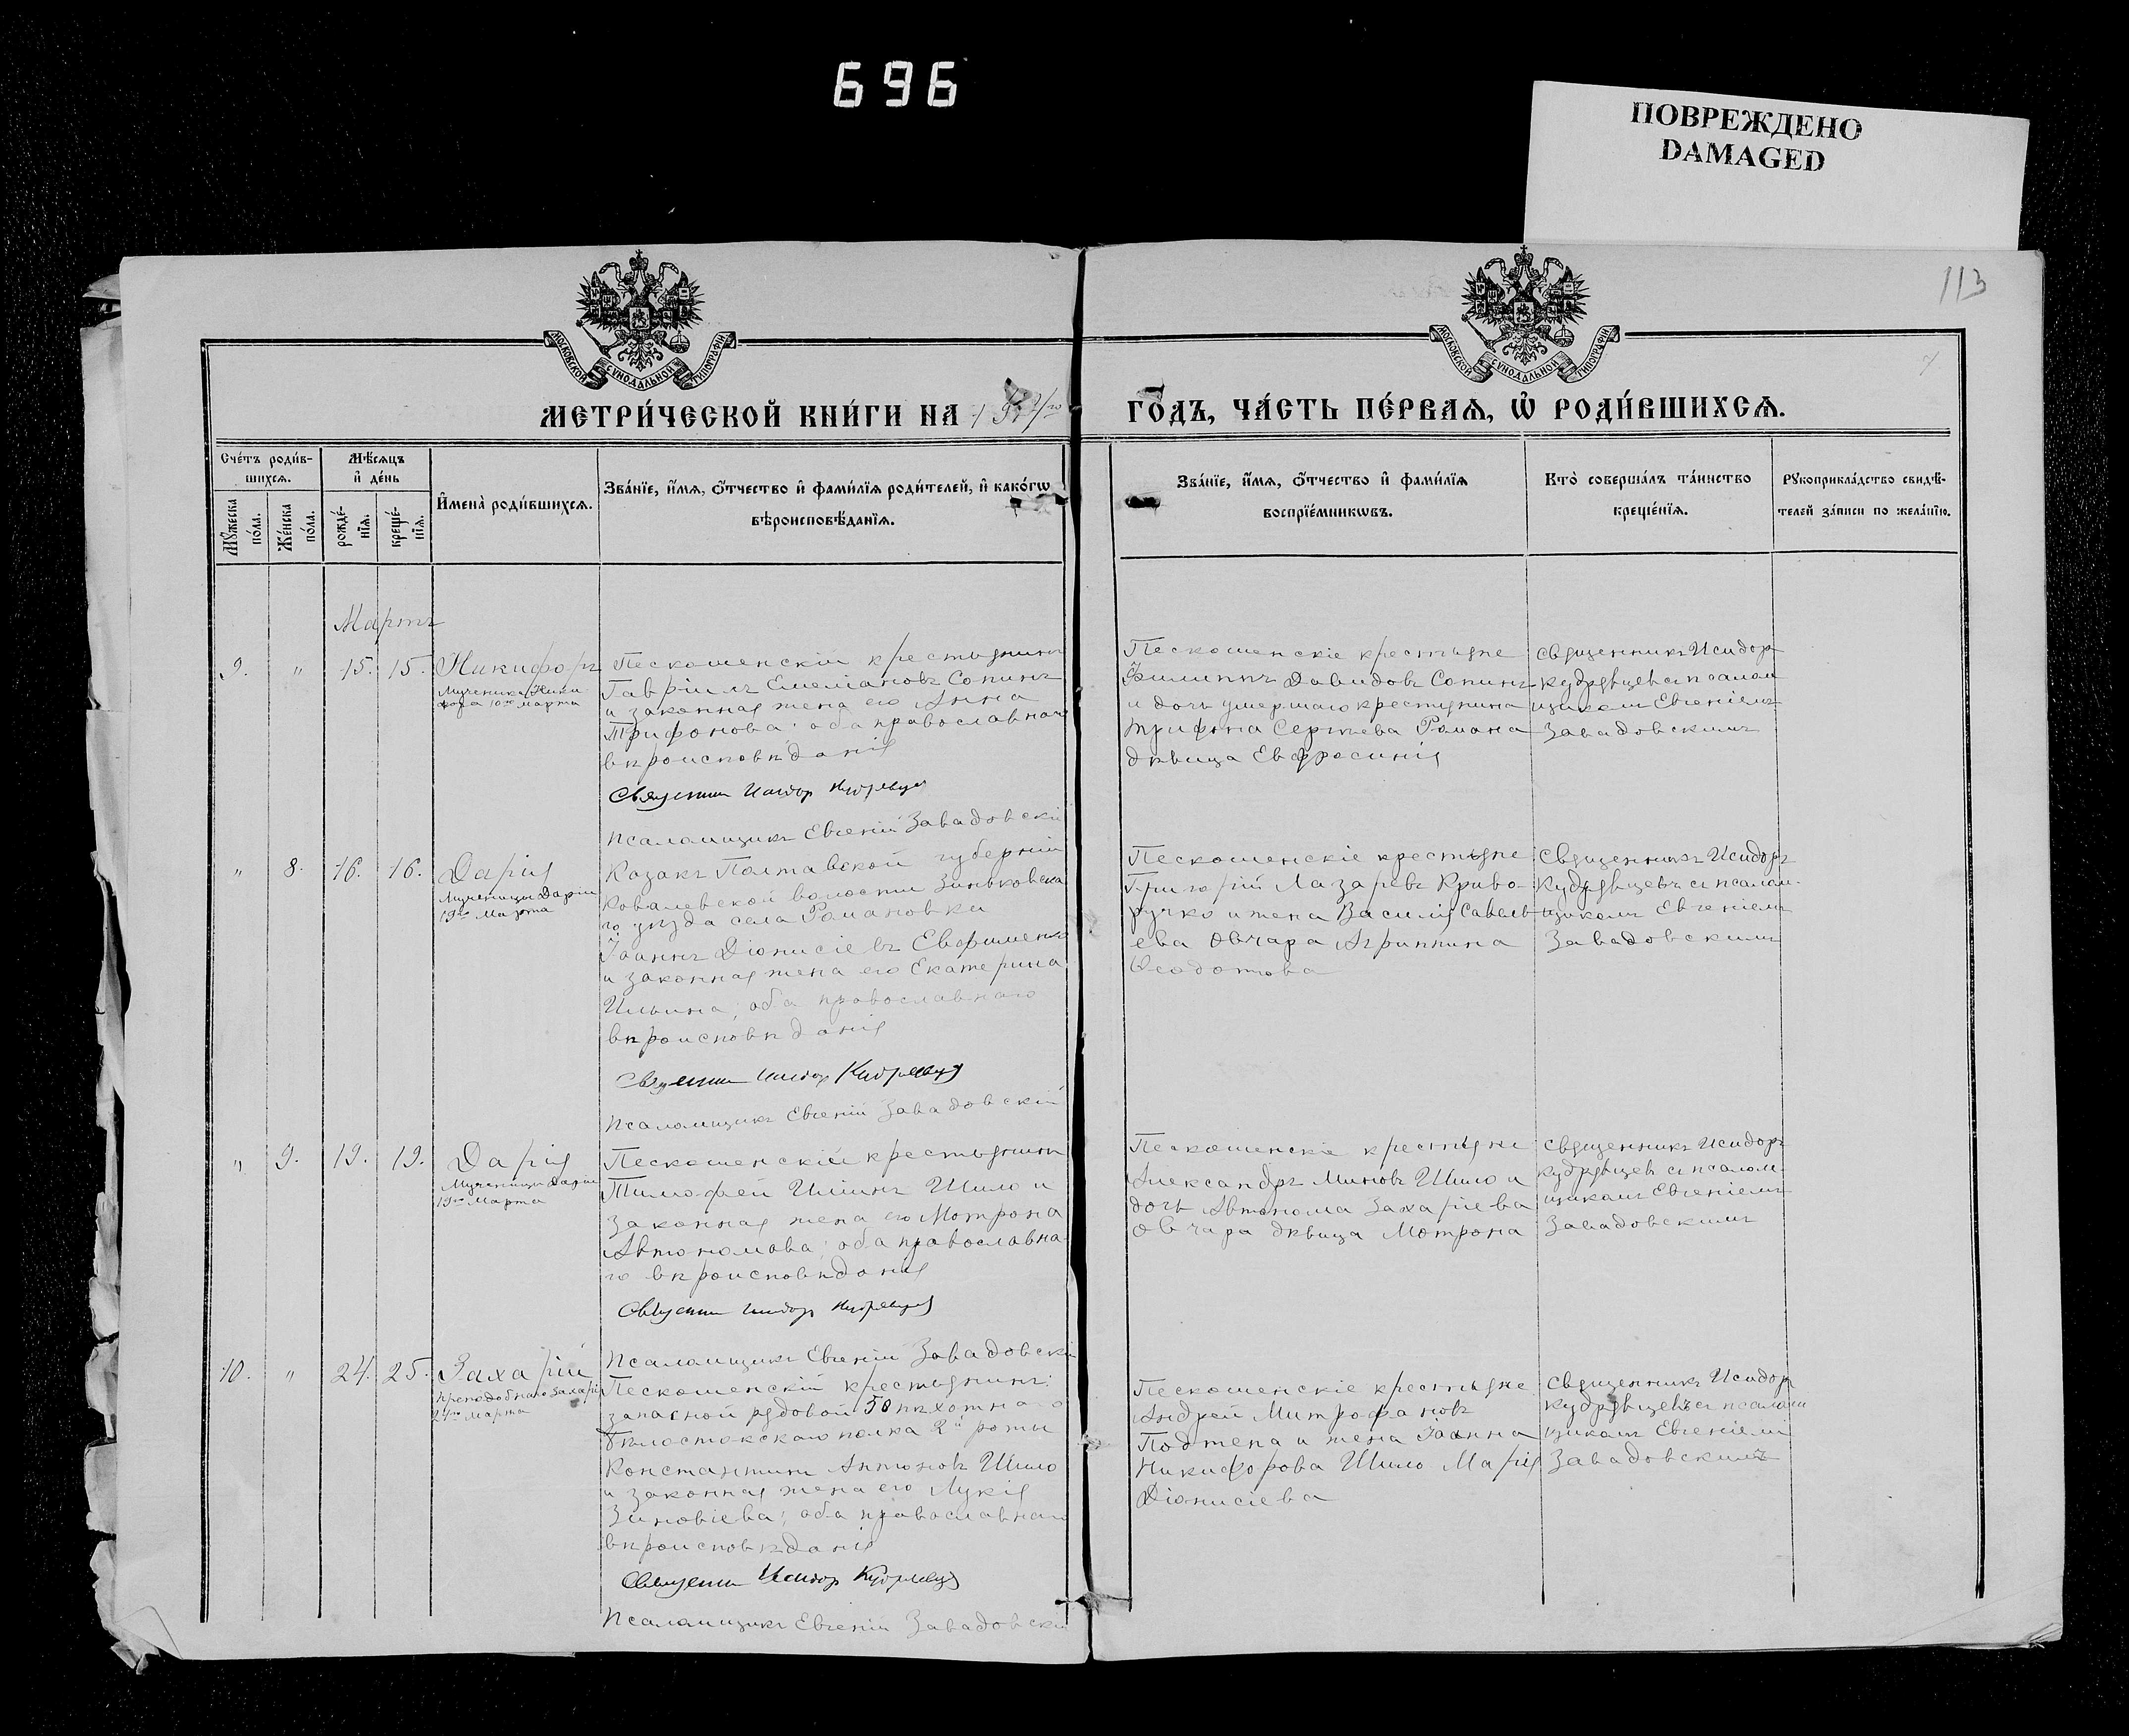 696
ПОВРЕЖДЕНО
DAMAGED
113
МОСКОВСКОЙ СУНОДАЛЬНОЙ ТИПОГРАФІИ
МОСКОВСКОЙ СУНОДАЛЬНОЙ ТИПОГРАФІИ
МЕТРИ́ЧЕСКОЙ КНИ́ГИ НА
ГО́ДЪ, ЧА́СТЬ ПЕ́РВАѦ, Ѡ҆ РОДИ́ВШИХСѦ.
Сче́тъ роди́в-
шихсѧ.
Мѣ́сѧцъ
и҆ де́нь
Мꙋ́жеска по́ла.
Же́нска по́ла.
рожде́-
нїѧ.
креще́-
нїѧ.
И҆мена̀ роди́вшихсѧ.
Зва́нїе, и҆́мѧ, ѻ҆́тчество и҆ фами́лїѧ роди́телей, и҆ како́гѡ
вѣроисповѣ́данїѧ.
Зва́нїе, и҆́мѧ, ѻ҆́тчество и҆ фами́лїѧ
воспрїе́мникѡвъ.
Кто̀ соверша́лъ та́инство
креще́нїѧ.
Рꙋкоприкла́дство свидѣ́-
телей за́писи по жела́нїю.
Мартъ
9. " 15. 15. Никифоръ
Мученика Ники
фора 10го марта
Пескошенскій крестьянинъ
Гавріилъ Емеліановъ Сопинъ
и законная жена его Анна
Трифонова; оба православнаго
вѣроисповѣданія
Священникъ Исидоръ Кудрявцевъ
Псаломщикъ Евгеній Завадовскій
Пескошенскіе крестьяне
Филиппъ Давидовъ Сопинъ
и дочь умершаго крестьянина
Трифона Сергіева Романа
дѣвица Евфросинія
священникъ Исидоръ
Кудрявцевъ съ псалом
щикомъ Евгеніемъ
Завадовскимъ
" 8. 16. 16. Дарія
Мученицы Даріи
19го Марта
Козакъ Полтавской губерніи
Ковалевской волости Зиньковска
го уѣзда села Романовки
Іоаннъ Діонисіевъ Евфименко
и законная жена его Екатерина
Ильина; оба православнаго
вѣроисповѣданія
Священникъ Исидоръ Кудрявцевъ
Псаломщикъ Евгеній Завадовскій
Пескошенскіе крестьяне
Григорій Лазаревъ Криво-
ручко и жена Василія Савель
ева Овчара Агриппина
Ѳеодотова
Священникъ Исидоръ
Кудрявцевъ съ псалом-
щикомъ Евгеніемъ
Завадовскимъ
" 9. 19. 19. Дарія
Мученицы Даріи
19го Марта
Пескошенскій крестьянинъ
Тимофей Иліинъ Шило и
законная жена его Мотрона
Автономова; оба православна-
го вѣроисповѣданія
Священникъ Исидоръ Кудрявцевъ
Псаломщикъ Евгеній Завадовскій
Пескошенскіе крестьяне
Александръ Миновъ Шило и
дочь Автонома Захаріева
Овчара дѣвица Мотрона
священникъ Исидоръ
Кудрявцевъ съ псалом-
щикомъ Евгеніемъ
Завадовскимъ
10. " 24. 25. Захарій
Преподобнаго Захаріи
24го Марта
Пескошенскій крестьянинъ:
запасной рядовой 50 пѣхотнаго
Бѣлостокскаго полка 2й роты
Константинъ Антоновъ Шило
и законная жена его Лукія
Зиновіева; оба православнаго
вѣроисповѣданія
Священникъ Исидоръ Кудрявцевъ
Псаломщикъ Евгеній Завадовскій
Пескошенскіе крестьяне
Андрей Митрофановъ
Подтепа и жена Іоанна
Никифорова Шило Марія
Діонисіева
Священникъ Исидоръ
Кудрявцевъ съ псалом
щикомъ Евгеніемъ
Завадовскимъ